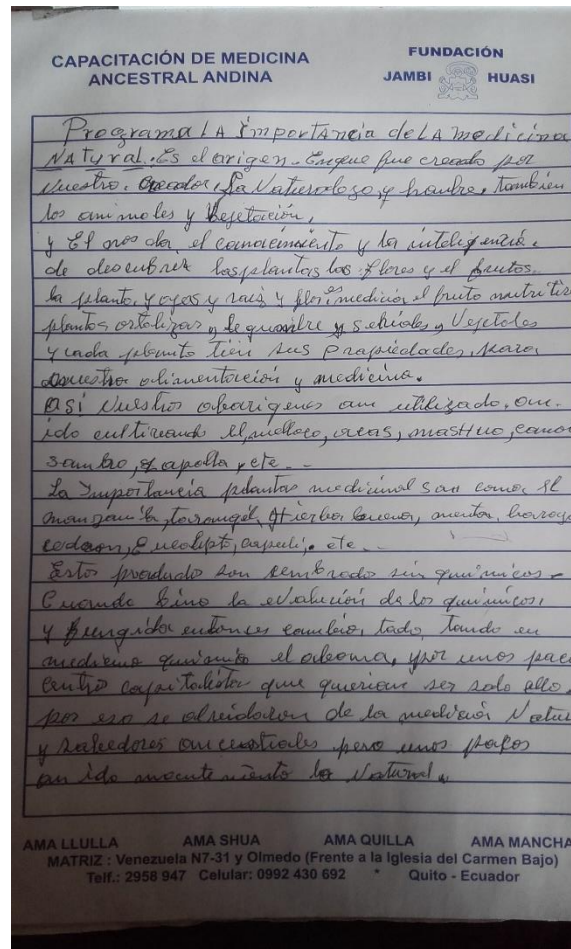 CAPACITACIÓN DE MEDICINA
ANCESTRAL ANDINA
FUNDACIÓN
JAMBI HUASI
Programa LA importAncia de LA medicina
NATURAL. Es el origen. En que fue creado por
Nuestro. Creador, la Naturaleza, y hombre, también
los animales y Vegetación,
y El nos da, el conocimiento y la inteligencia.
de descubrir las plantas las flores y el frutos.
la planta, y ojas y rais y flor es medicina, el fruto nutritivo
plantas ortalizas, y legumbre y y Vejetales
y cada planta tien sus Propiedades, para
nuestra alimentación y medicina.
asi Nuestros aborigenes an utilizado, an
ido cultivando el melloco, ocas, mashuo,
sambo, zapallo, etc..
La Importancia plantas medicinal san como, el
manzanilla, torongel, Hierba buena, menta,
cedron, Eucalipt, capuli,. etc..
Estos producto son sembrado sin quimicos.
Cuando bino la evolución de los quimicos,
y fungida entonces cambio, todo, tando en
medicina quimico el aboma, y por unos
Centro capitalistas que querian ser solo ello.
por eso se olvidaron de la medición
y sabedores ancestrales pero unos
an ido la Natural.
AMA LLULLA AMA SHUA AMA QUILLA AMA MANCHA
MATRIZ : Venezuela N7-31 y Olmedo (Frente a la Iglesia del Carmen Bajo)
Telf.: 2958 947 Celular: 0992 430 692 * Quito - Ecuador